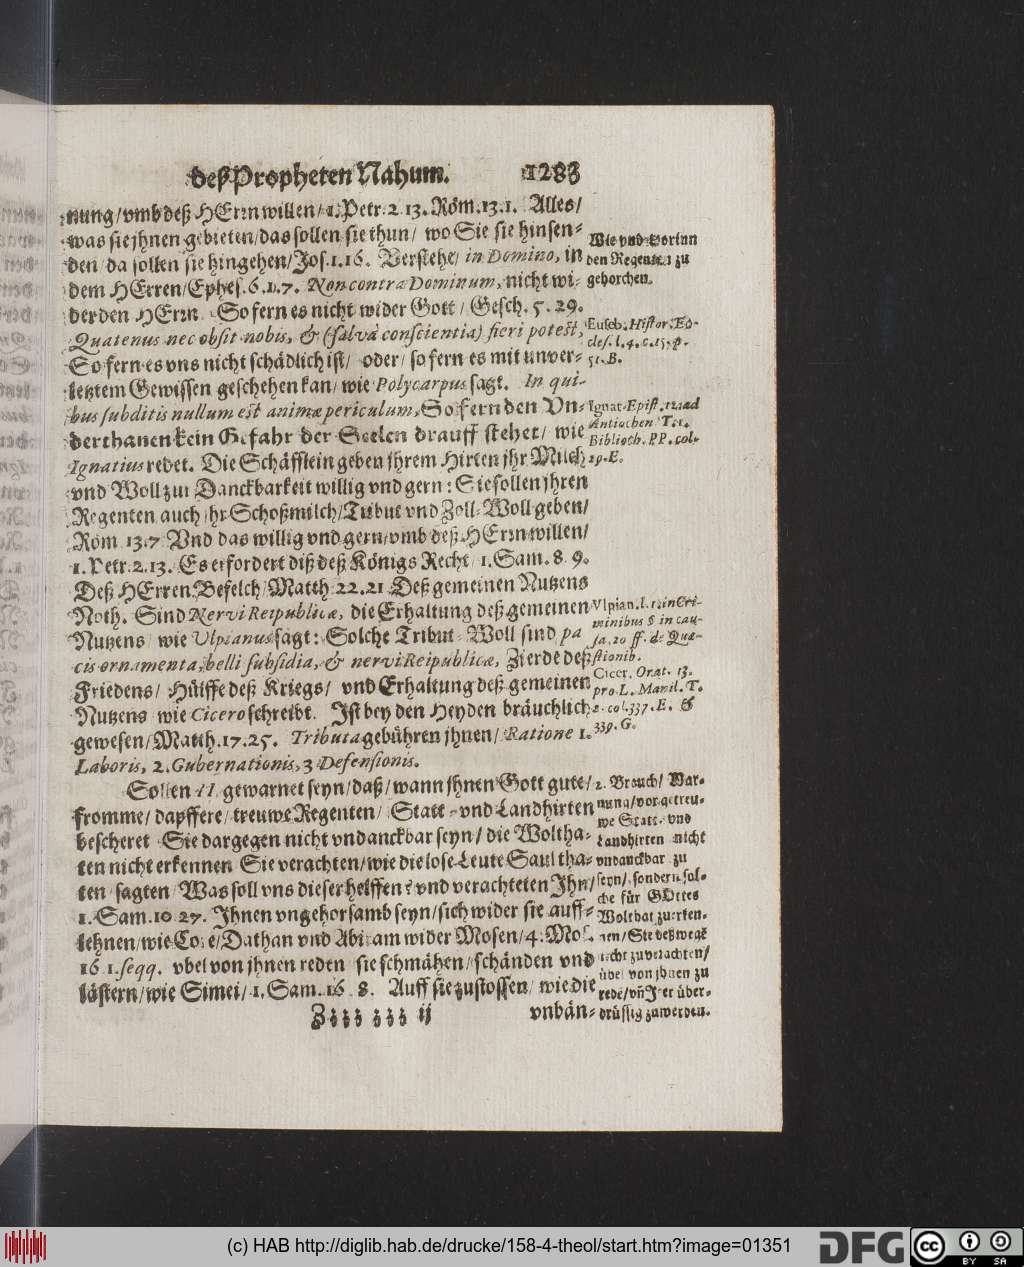 deß Propheten Nahum. 1283
nung/vmb deß HErrn willen/1. Petr. 2 13. Röm. 13. 1. Alles/
was sie jhnen gebieten/das sollen sie thun/ wo Sie sie hinsen-
den/da sollen sie hingehen/Jos. 1. 16. Verstehe/ in Domino, in
dem HErren/Ephes. 6. 1. 7. Non contra Dominum, nicht wi-
der den HErrn So fern es nicht wider Gott/ Gesch. 5. 29.
Quatenus nec obsit nobis, & (salvâ conscientiâ) fieri potest,
So fern es vns nicht schädlich ist/ oder/ so fern es mit vnver-
letztem Gewissen geschehen kan/ wie Polycarpus sagt. In qui-
bus subditis nullum est animæ periculum, So fern den Vn-
derthanen kein Gefahr der Seelen drauff stehet/ wie
Ignatius redet. Die Schäfflein geben jhrem Hirten jhr Milch
vnd Woll zur Danckbarkeit willig vnd gern: Sie sollen jhren
Regenten auch jhr Schoßmilch/Tribut vnd Zoll-Woll geben/
Röm 13. 7 Vnd das willig vnd gern/vmb deß HErrn willen/
1. Petr. 2. 13. Es erfordert diß deß Königs Recht/ 1. Sam. 8. 9.
Deß HErren Befelch/Matth. 22. 21 Deß gemeinen Nutzens
Noth. Sind Nervi Reipublicæ, die Erhaltung deß gemeinen
Nutzens/ wie Ulpianus sagt: Solche Tribut-Woll sind pa
cis ornamenta, belli subsidia, & nervi Reipublicæ, Zierde deß
Friedens/ Hülffe deß Kriegs/ vnd Erhaltung deß gemeinen
Nutzens wie Cicero schreibt. Ist bey den Heyden bräuchlich
gewesen/Matth. 17. 25. Tributa gebühren jhnen/ Ratione 1.
Laboris, 2. Gubernationis, 3 Defensionis.
Sollen II gewarnet seyn/daß/wann jhnen Gott gute/
fromme/dapffere/treuwe Regenten/ Statt- vnd Landhirten
bescheret Sie dargegen nicht vndanckbar seyn/ die Woltha-
ten nicht erkennen Sie verachten/wie die lose Leute Saul tha-
ten/sagten/Was soll vns dieser helffen? vnd verachteten Ihn/
1. Sam. 10 27. Ihnen vngehorsamb seyn/sich wider sie auff-
lehnen/wie Core/Dathan vnd Abiram wider Mosen/4. Mos.
16 1. seqq. vbel von jhnen reden sie schmähen/schänden vnd
lästern/wie Simei/1. Sam. 16 8. Auff sie zustossen/ wie die
Zzzz zzz ij vnbän-
Wie vnd worinn
den Regenten zu
gehorchen.
Euseb. Histor. Ec-
cles. l. 4. c. 15. p.
51. B.
Ignat. Epist. 12. ad
Antiochen Tot.
Biblioth. PP. col.
29. E.
Vlpian. l. 1. in Cri-
minibus § in cau-
sa. 20 ff. de Quæ-
stionib.
Cicer. Orat. 13.
pro L. Manil. T.
2. col. 337. E. &
339. G.
2. Brauch/ War-
nung/vor getreu-
we Statt- vnd
Landhirten nicht
vndanckbar zu
seyn/ sondern sol-
che für GOttes
Wolthat zuerken-
nen/Sie deßwegē
nicht zuverachten/
übel von jhnen zu
redē/vñ Irer über-
drüssig zuwerden.
(c) HAB http://diglib.hab.de/drucke/158-4-theol/start.htm?image=01351
DFG
cc
BY SA